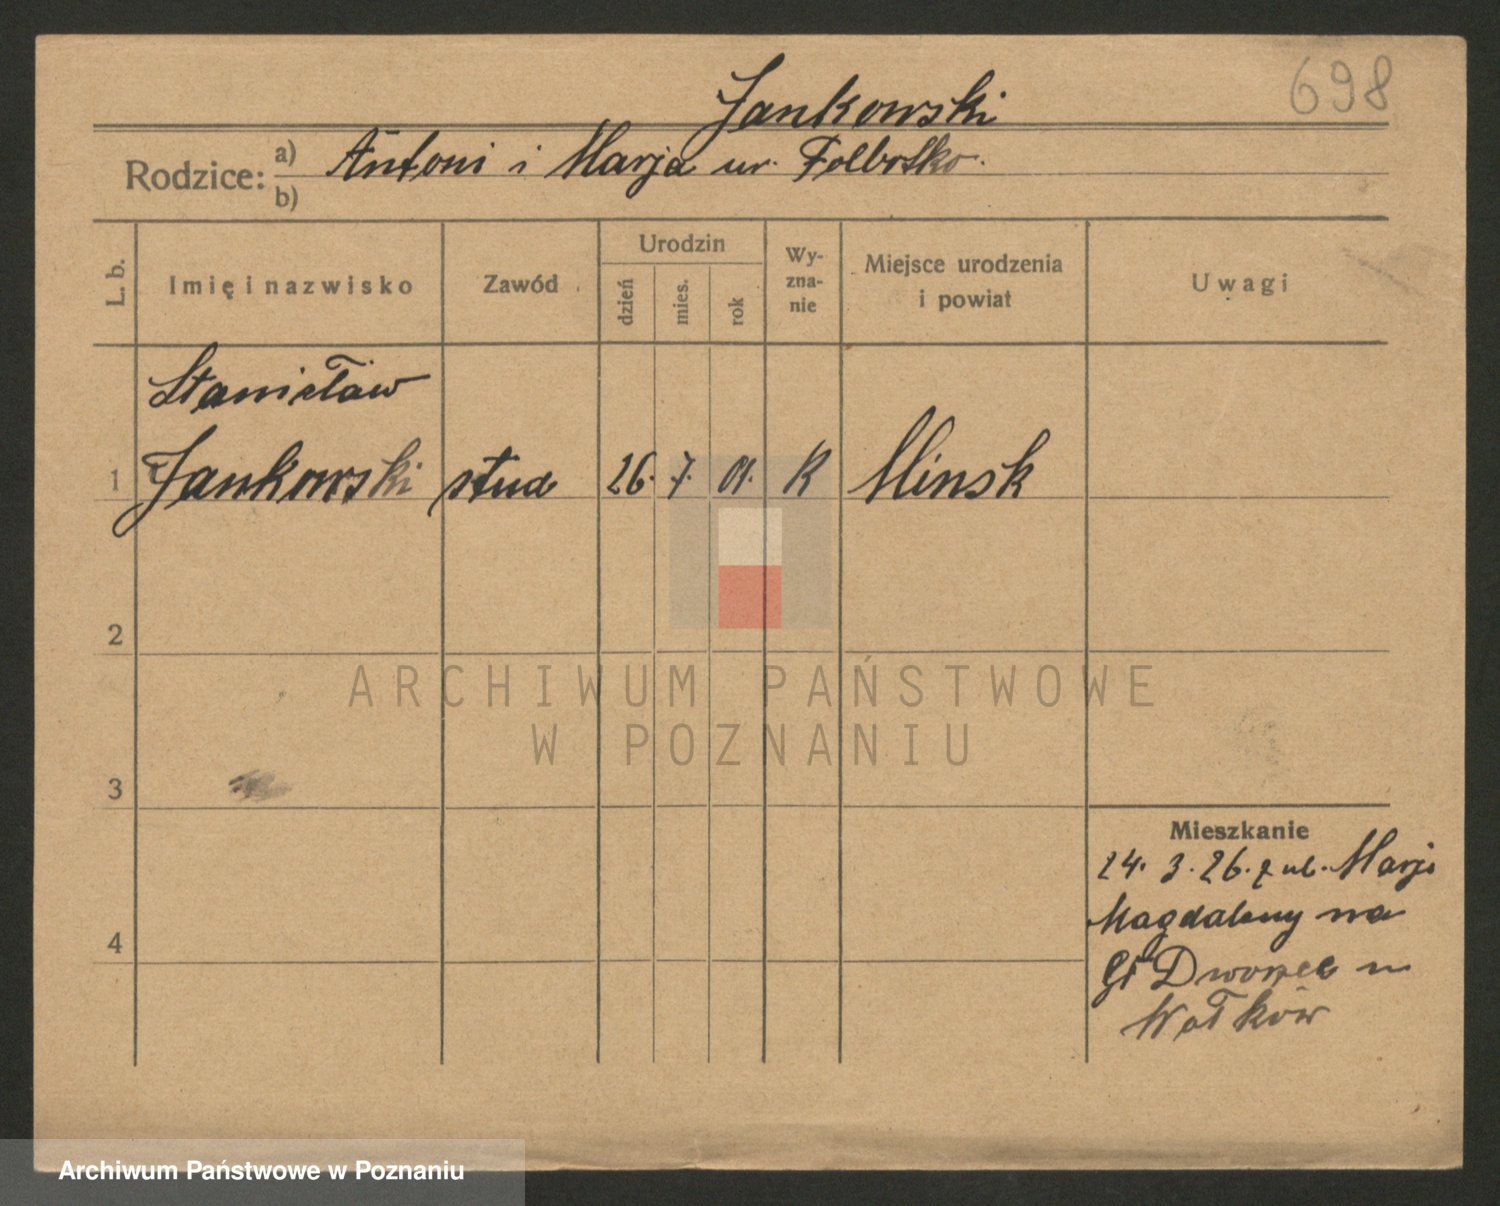 698
Jankowski
Rodzice: a) Antoni i Marja ur.
b)
L. b. Imię i nazwisko Zawód Urodzin dzień mies. rok Wyznanie Miejsce urodzenia i powiat Uwagi
Stanisław
1 Jankowski stud 26. 7. 01. K Minsk
2
ARCHIWUM PAŃSTWOWE
W POZNANIU
3
Mieszkanie
24. 3. 26. z ul. Marji
Magdaleny na
4
Gł Dworzec u
Wołków
Archiwum Państwowe w Poznaniu